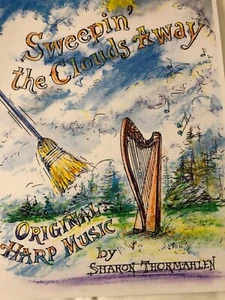 Sweepin'
the Clouds Away
ORIGINAL
HARP MUSIC
by
SHARON THORMAHLEN